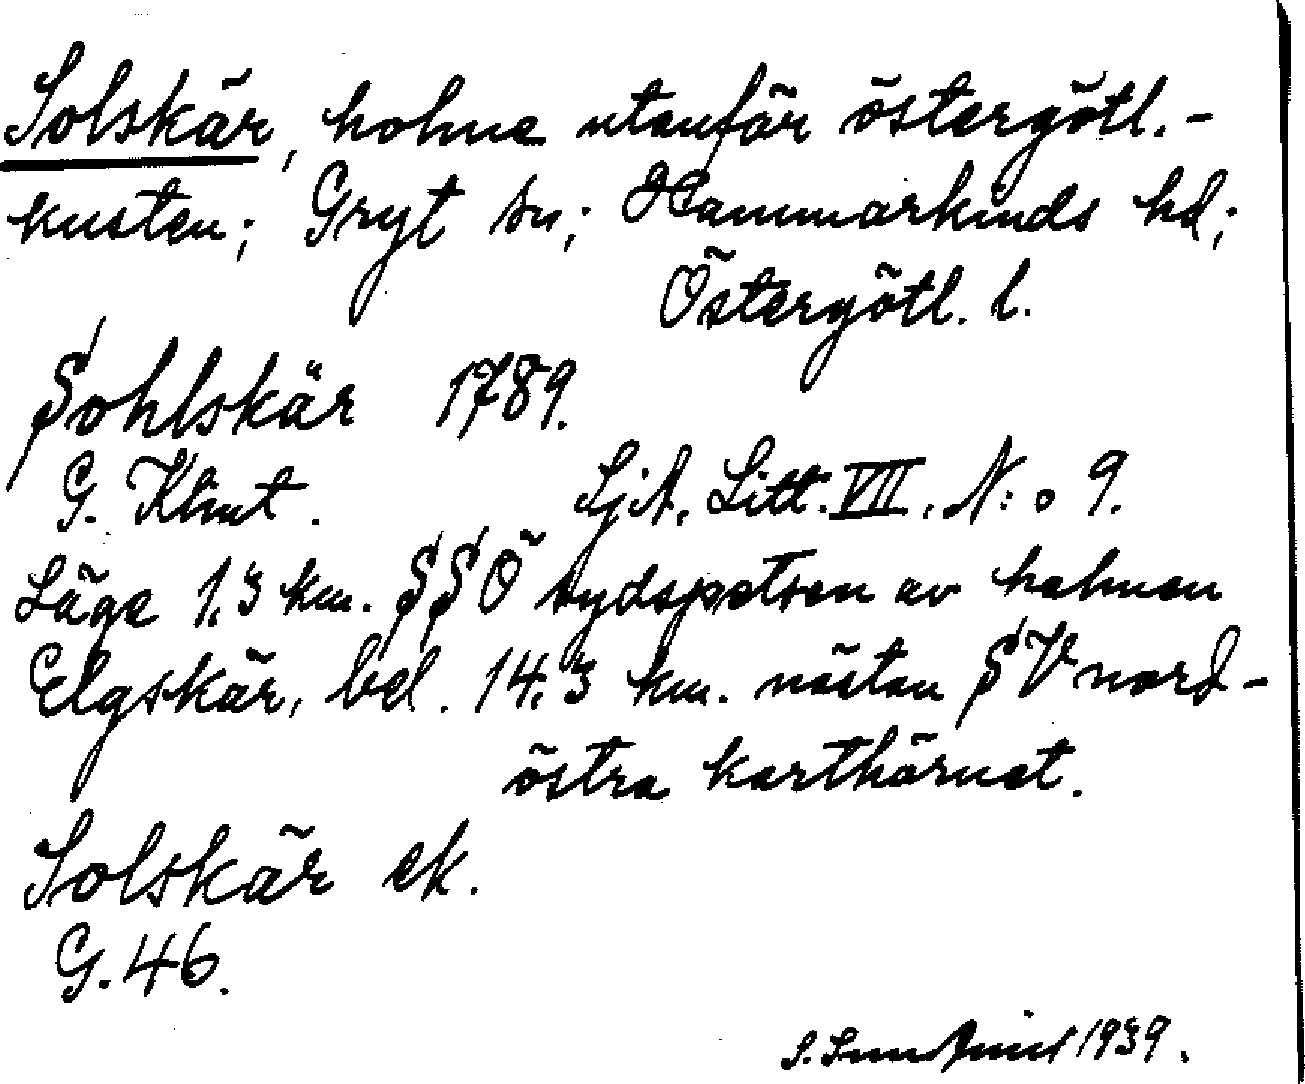 Solskär, holme utanför östergötl.-
kusten; Gryt sn; Hammarkinds hd;
Östergötl. l.
Sohlskär 1789.
G. Klint. SjA, Litt. VII, N:o 9.
Läge 1,3 km. SSÖ sydspetsen av holmen
Elgskär, bel. 14,3 km. nästan SV nord-
östra karthörnet.
Solskär ek.
G. 46.
S. 1939.